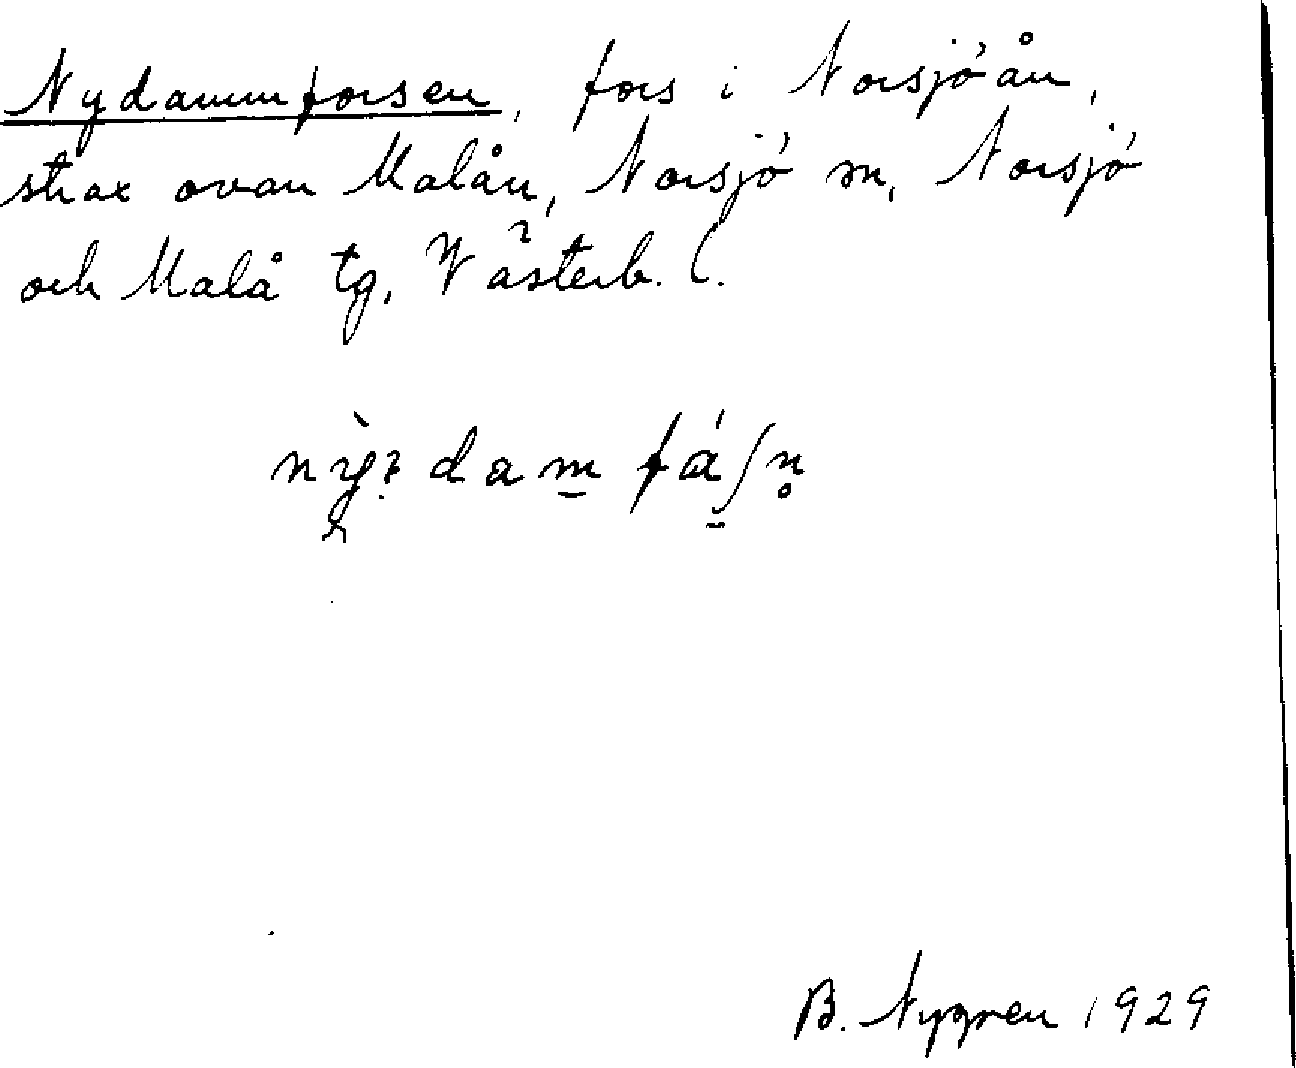 Nydammforsen, fors i Norsjöån,
strax ovan Malån, Norsjö sn, Norsjö
och Malå tg, Västerb. l.
B. Nygren 1929